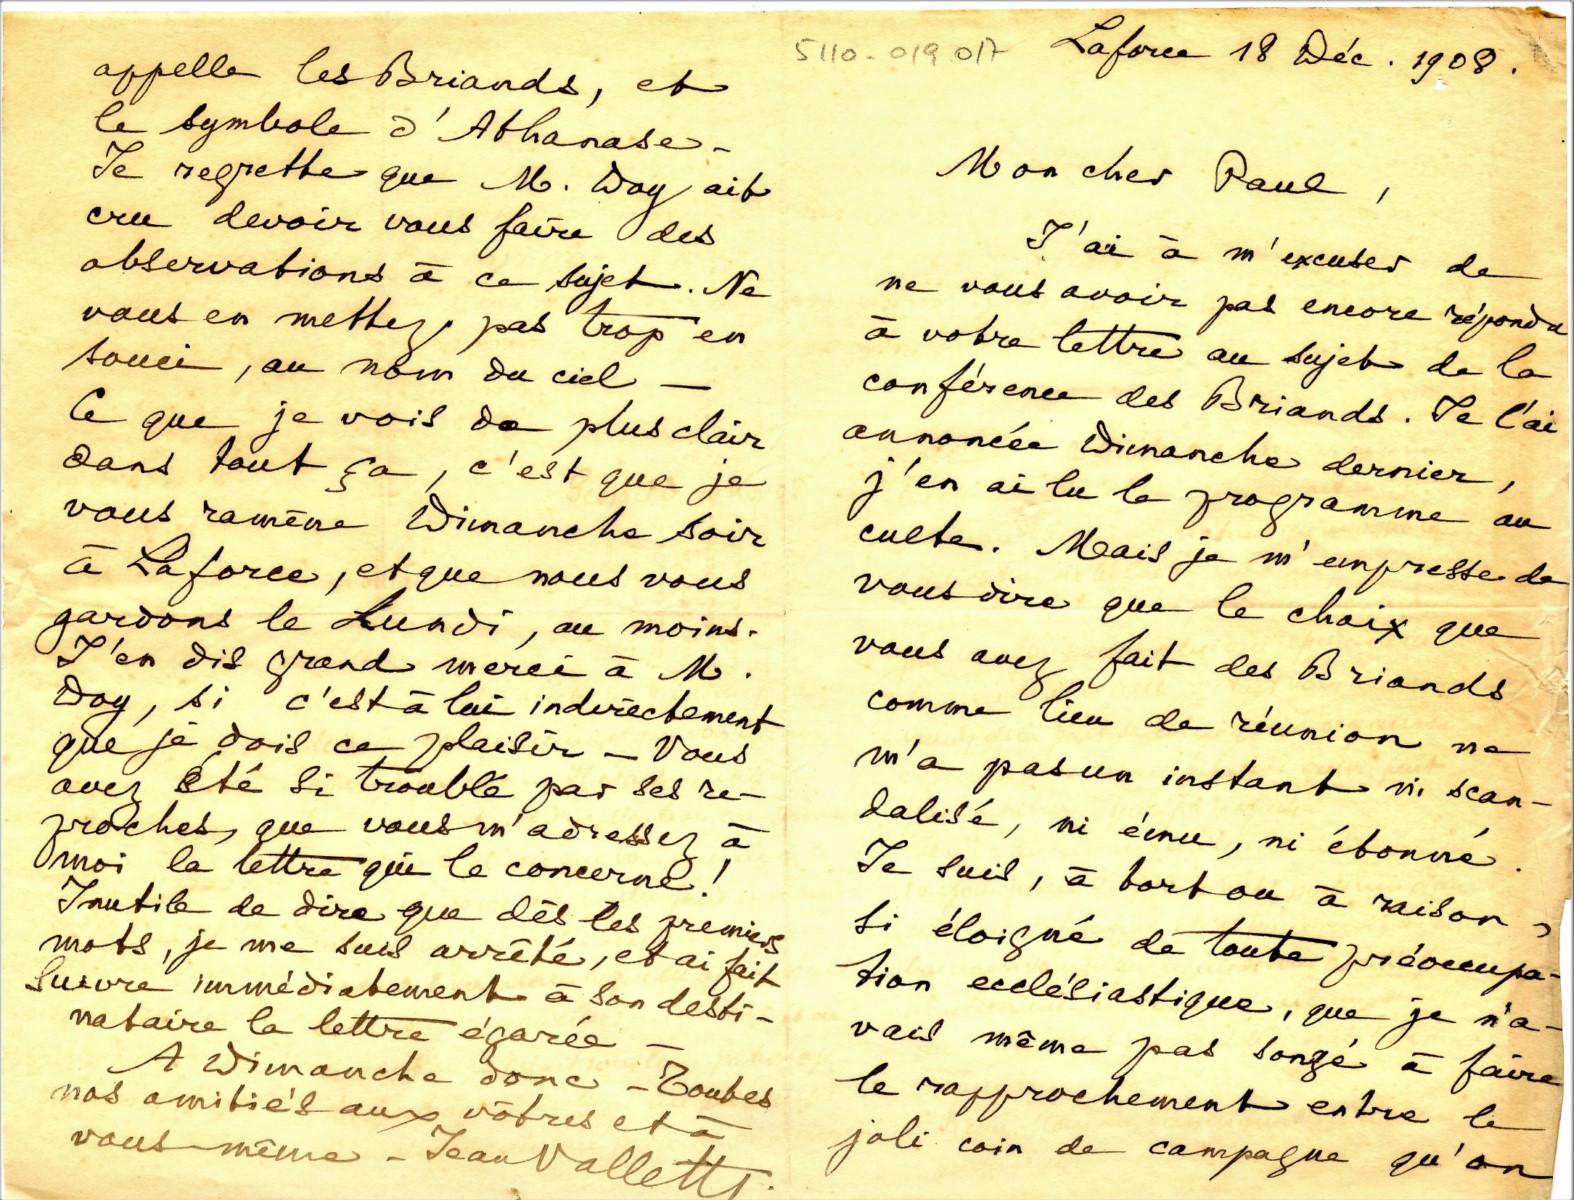 5110-019 017
Laforce 18 Déc. 1908.
Mon cher Paul,
J'ai à m'excuser de
ne vous avoir pas encore répondu
à votre lettre au sujet de la
conférence des Briands. Je l'ai
annoncée Dimanche dernier,
j'en ai lu le programme au
culte. Mais je m'empresse de
vous dire que le choix que
vous avez fait des Briands
comme lieu de réunion ne
m'a pas un instant ni scan-
dalisé, ni ému, ni étonné.
Je suis, à tort ou à raison,
si éloigné de toute préoccupa-
tion ecclésiastique, que je n'a-
vais même pas songé à faire
le rapprochement entre le
joli coin de campagne qu'on
appelle les Briands, et
le symbole d'Athanase -
Je regrette que M. Doy ait
cru devoir vous faire des
observations à ce sujet. Ne
vous en mettez pas trop en
souci, au nom du ciel -
Ce que je vois de plus clair
dans tout ça, c'est que je
vous ramène Dimanche soir
à Laforce, et que nous vous
gardons le Lundi, au moins.
J'en dis grand merci à M.
Doy, si c'est à lui indirectement
que je dois ce plaisir - Vous
avez été si troublé par ses re-
proches, que vous m'adressez à
moi la lettre qui le concerne!
Inutile de dire que dès les premiers
mots, je me suis arrêté, et ai fait
suivre immédiatement à son desti-
nataire la lettre égarée -
A Dimanche donc - Toutes
nos amitiés aux vôtres et à
vous-même - Jean Vallette.